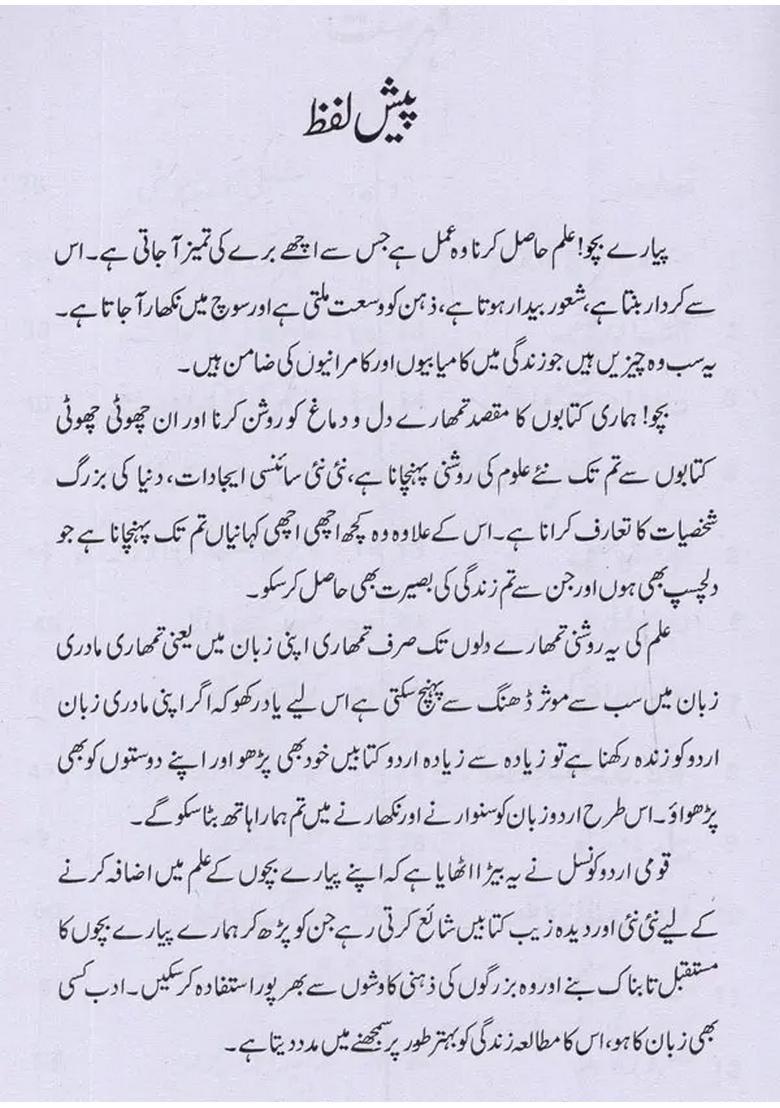 پیش لفظ
پیارے بچو! علم حاصل کرنا وہ عمل ہے جس سے اچھے برے کی تمیز آ جاتی ہے۔ اس
سے کردار بنتا ہے، شعور بیدار ہوتا ہے، ذہن کو وسعت ملتی ہے اور سوچ میں نکھار آ جاتا ہے۔
یہ سب وہ چیزیں ہیں جو زندگی میں کامیابیوں اور کامرانیوں کی ضامن ہیں۔
بچو! ہماری کتابوں کا مقصد تمھارے دل و دماغ کو روشن کرنا اور ان چھوٹی چھوٹی
کتابوں سے تم تک نئے علوم کی روشنی پہنچانا ہے، نئی نئی سائنسی ایجادات، دنیا کی بزرگ
شخصیات کا تعارف کرانا ہے۔ اس کے علاوہ وہ کچھ اچھی اچھی کہانیاں تم تک پہنچانا ہے جو
دلچسپ بھی ہوں اور جن سے تم زندگی کی بصیرت بھی حاصل کر سکو۔
علم کی یہ روشنی تمھارے دلوں تک صرف تمھاری اپنی زبان میں یعنی تمھاری مادری
زبان میں سب سے موثر ڈھنگ سے پہنچ سکتی ہے اس لیے یاد رکھو کہ اگر اپنی مادری زبان
اردو کو زندہ رکھنا ہے تو زیادہ سے زیادہ اردو کتابیں خود بھی پڑھو اور اپنے دوستوں کو بھی
پڑھواؤ۔ اس طرح اردو زبان کو سنوارنے اور نکھارنے میں تم ہمارا ہاتھ بٹا سکو گے۔
قومی اردو کونسل نے یہ بیڑا اٹھایا ہے کہ اپنے پیارے بچوں کے علم میں اضافہ کرنے
کے لیے نئی نئی اور دیدہ زیب کتابیں شائع کرتی رہے جن کو پڑھ کر ہمارے پیارے بچوں کا
مستقبل تابناک بنے اور وہ بزرگوں کی ذہنی کاوشوں سے بھرپور استفادہ کر سکیں۔ ادب کسی
بھی زبان کا ہو، اس کا مطالعہ زندگی کو بہتر طور پر سمجھنے میں مدد دیتا ہے۔